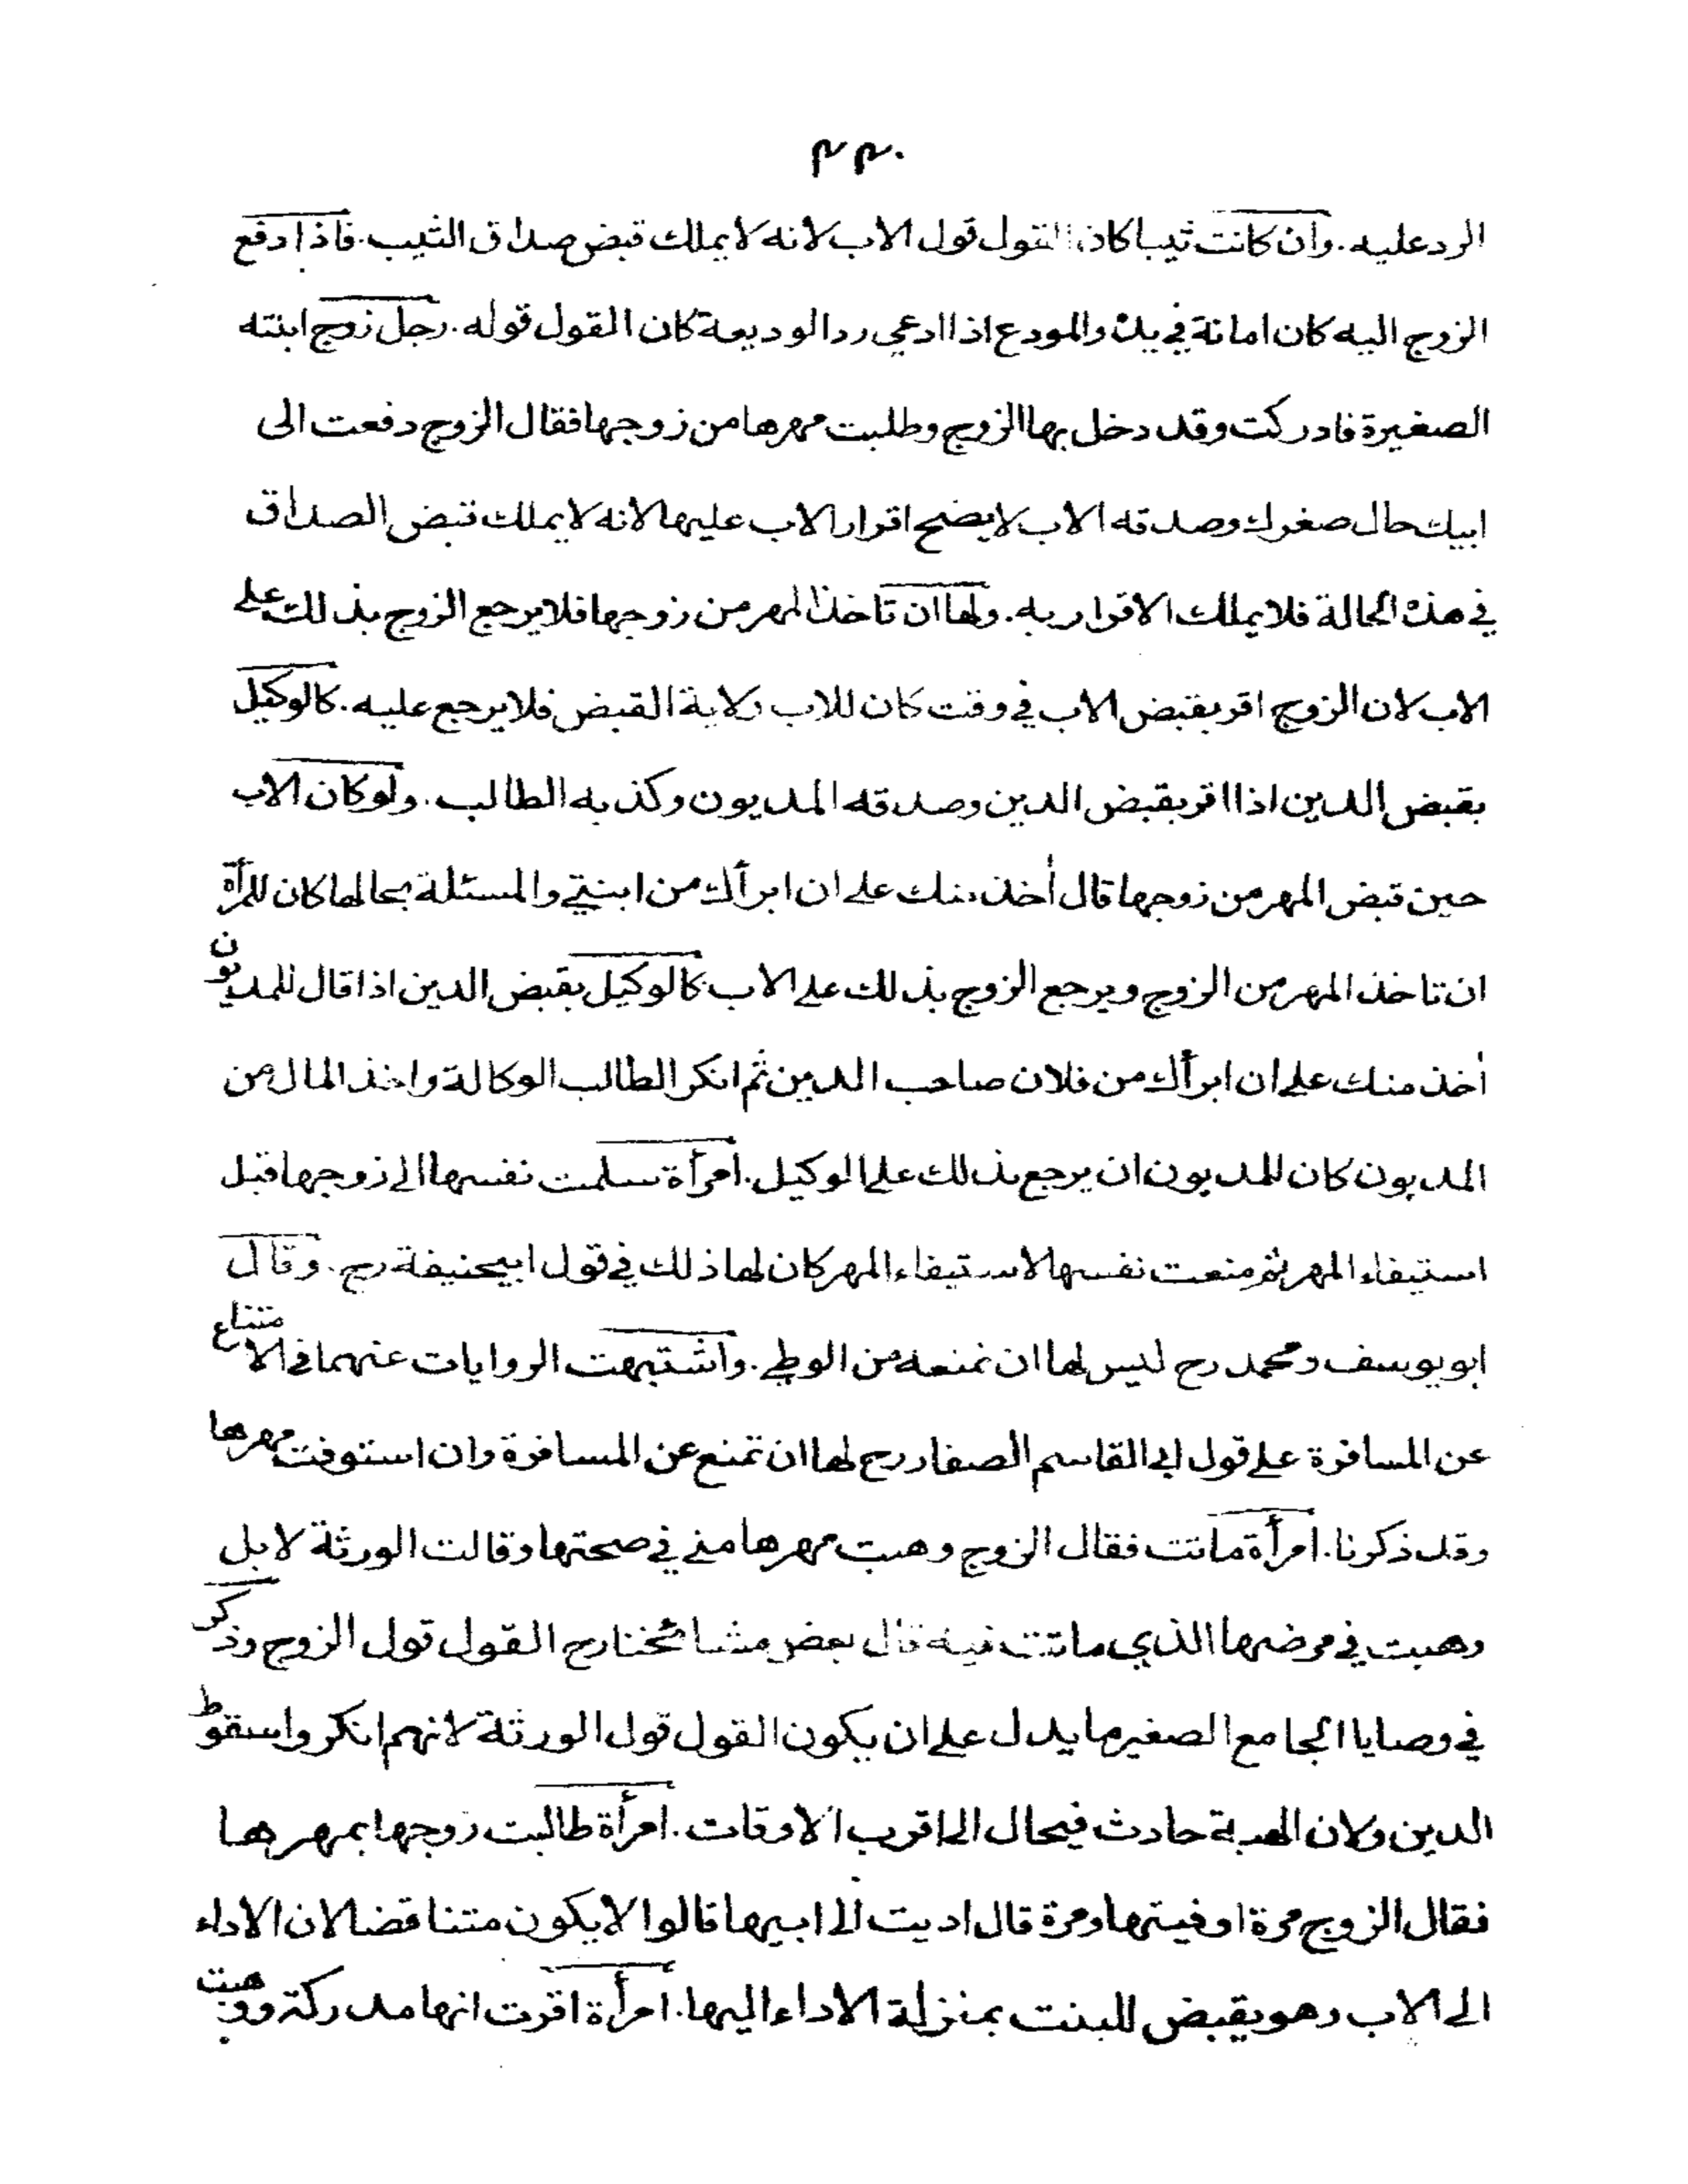 ۴۴۰
الرد عليه . وان كانت ثيبا كان القول قول الاب لانه لا يملك قبض صداق الثيب . فاذا دفع
الزوج اليه كان امانة في يده والمودع اذا ادعي رد الوديعة كان القول قوله . رجل زوج ابنته
الصغيرة فادركت وقد دخل بها الزوج وطلبت مهرها من زوجها فقال الزوج دفعت الى
ابيك حال صغرك وصدقه الاب لا يصح اقرار الاب عليها لانه لا يملك قبض الصداق
في هذه الحالة فلا يملك الاقرار به . ولها ان تاخذ المهر من زوجها فلا يرجع الزوج بذلك علے
الاب لان الزوج اقر بقبض الاب في وقت كان للاب ولاية القبض فلا يرجع عليه . كالوكيل
بقبض الدين اذا اقر بقبض الدين وصدقه المديون وكذبه الطالب . ولو كان الاب
حين قبض المهر من زوجها قال أخذ منك علے ان ابرأك من ابنتي والمسئلة بحالها كان للمرأة
ان تاخذ المهر من الزوج ويرجع الزوج بذلك علے الاب . كالوكيل بقبض الدين اذا قال للمديون
أخذ منك علے ان ابرأك من فلان صاحب الدين ثم انكر الطالب الوكالة واخذ المال من
المديون كان للمديون ان يرجع بذلك علے الوكيل . امرأة سلمت نفسها الے زوجها قبل
استيفاء المهر ثم منعت نفسها لاستيفاء المهر كان لها ذلك في قول ابيحنيفة رح . وقال
ابو يوسف ومحمد رح ليس لها ان تمنعه من الوطي . واشتبهت الروايات عنهما في الامتناع
عن المسافرة علے قول ابي القاسم الصفار رح لها ان تمنع عن المسافرة وان استوفت مهرها
وقد ذكرنا . امرأة ماتت فقال الزوج وهبت مهرها مني في صحتها وقالت الورثة لا بل
وهبت في مرضها الذي ماتت فيه قال بعض مشائخنا رح القول قول الزوج وذكر
في وصايا الجامع الصغير ما يدل علے ان يكون القول قول الورثة لانهم انكروا سقوط
الدين ولان الهبة حادث فيحال الے اقرب الاوقات . امرأة طالبت زوجها بمهرها
فقال الزوج مرة اوفيتها ومرة قال اديت الے ابيها قالوا لا يكون متناقضا لان الاداء
الے الاب وهو يقبض للبنت بمنزلة الاداء اليها . امرأة اقرت انها مدركة ووهبت